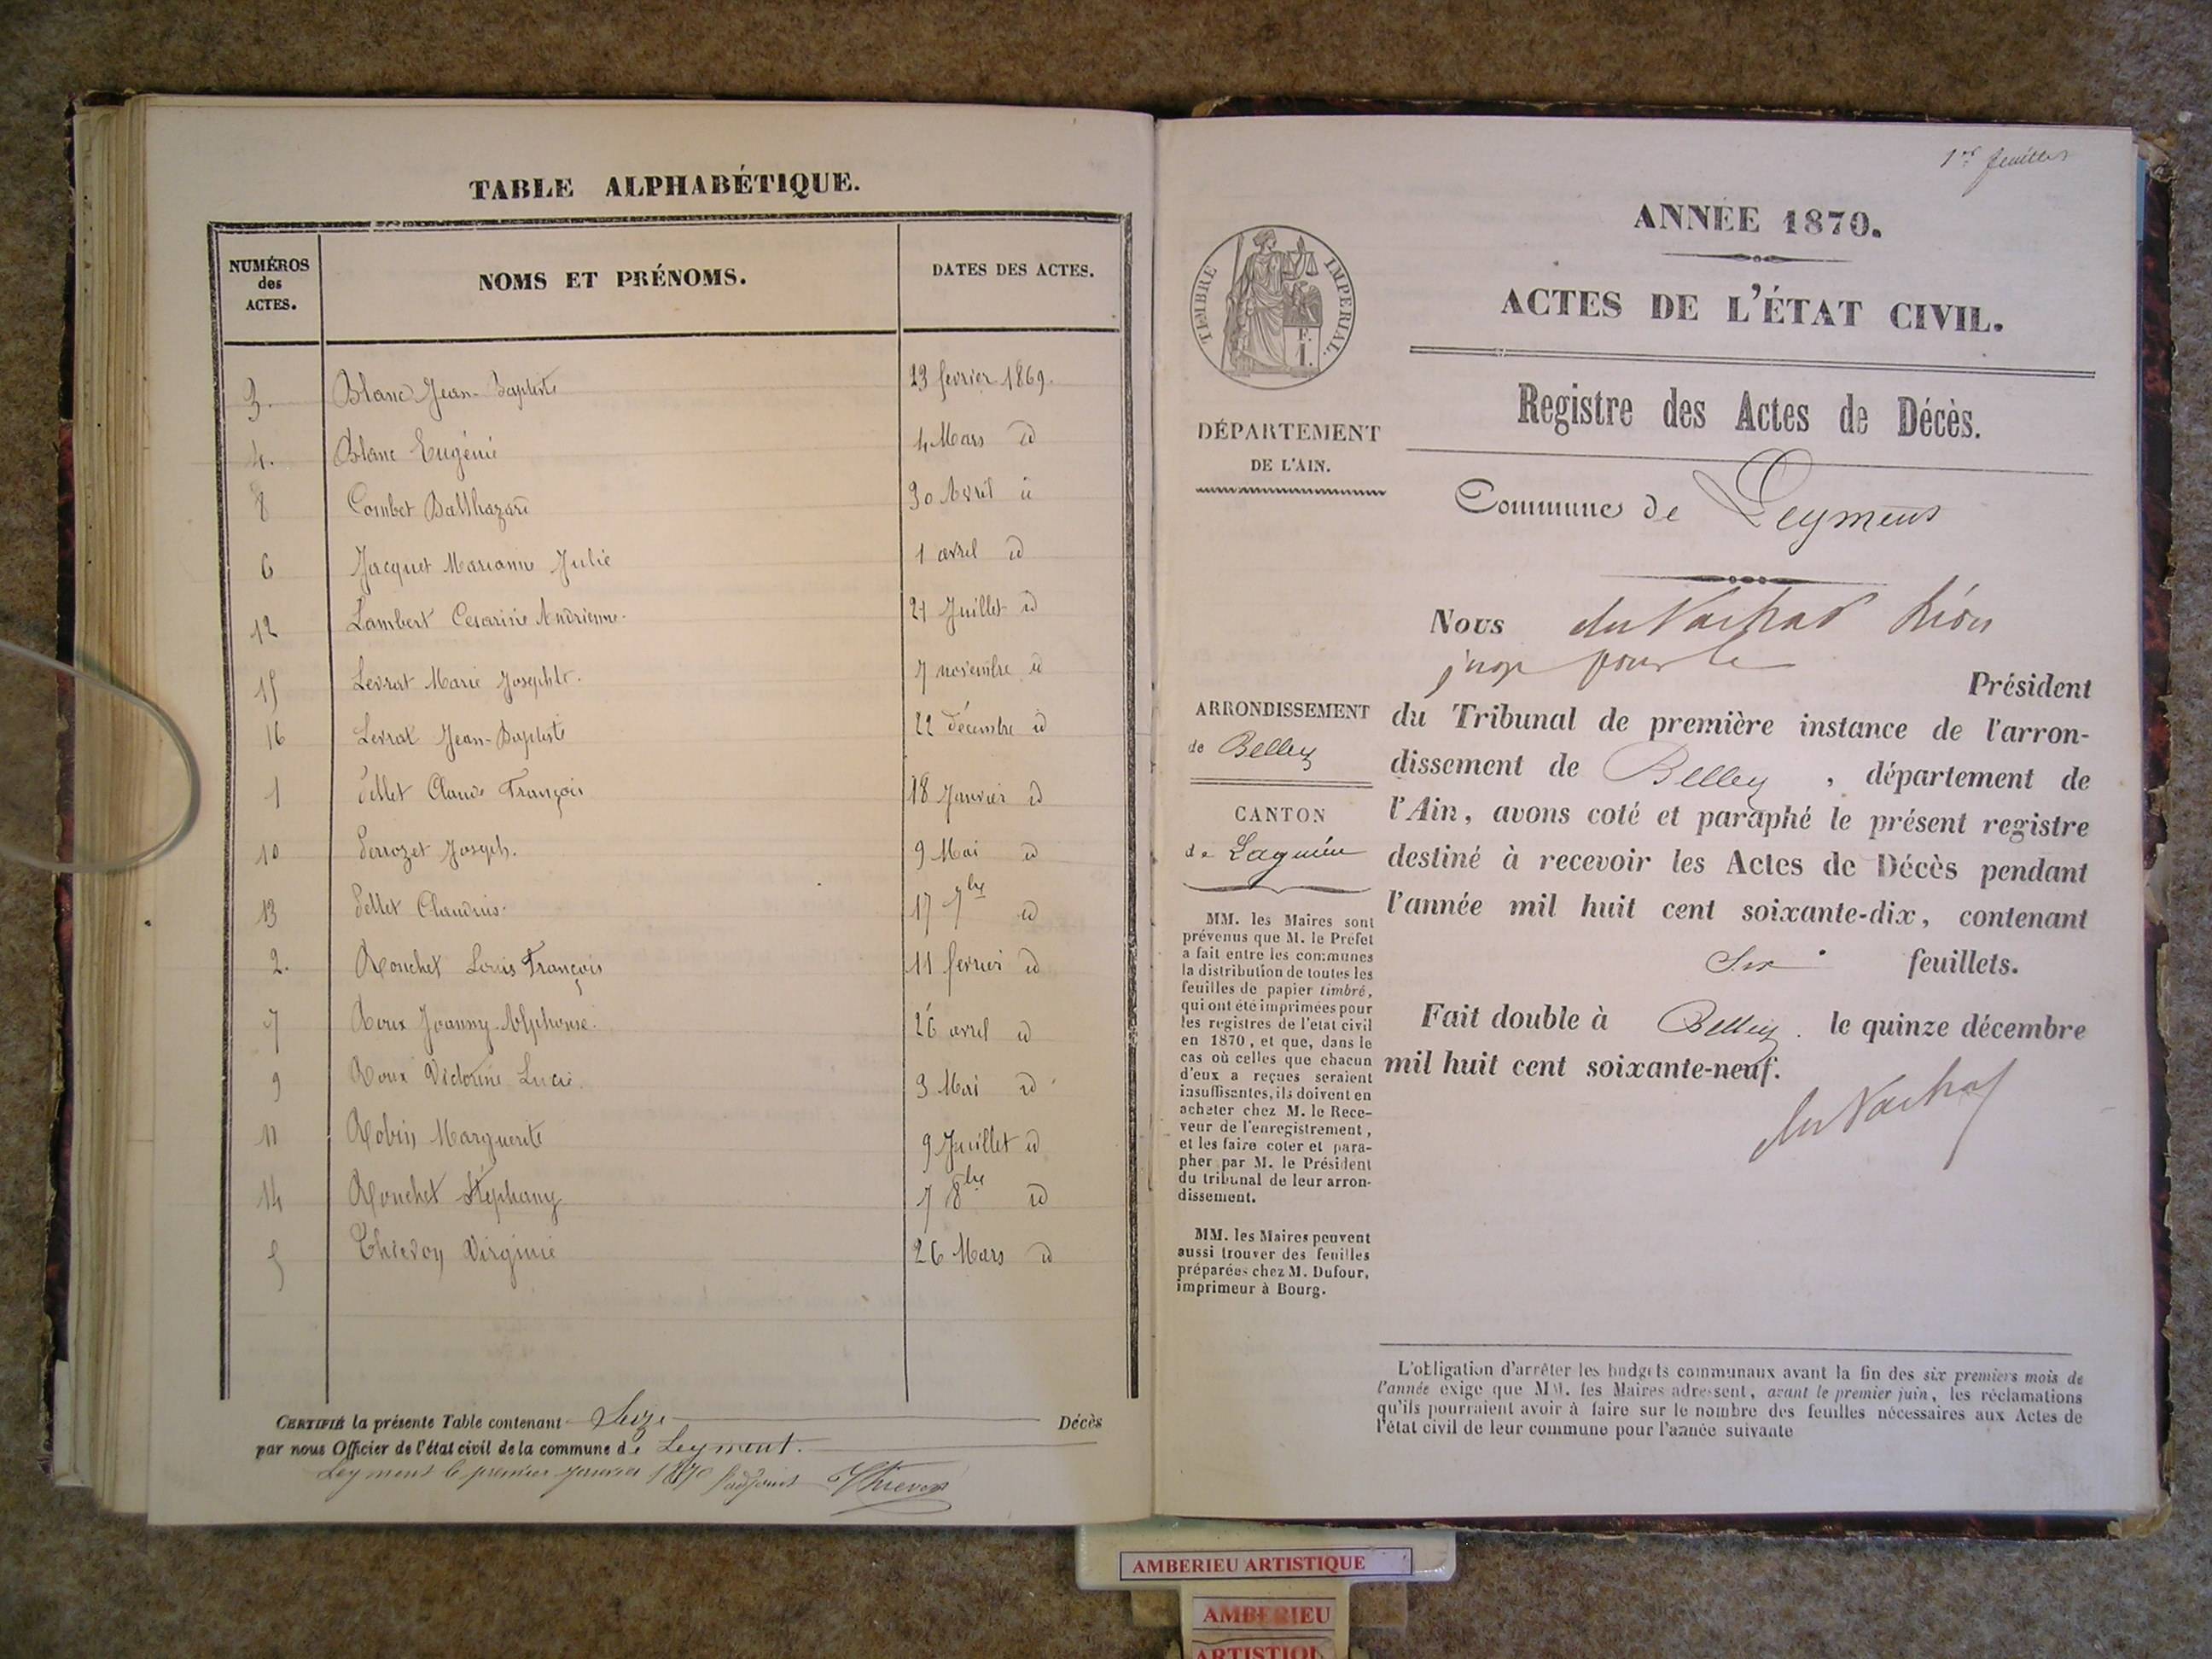 TABLE ALPHABÉTIQUE.
NUMÉROS des ACTES.
NOMS ET PRÉNOMS.
DATES DES ACTES.
3. Blanc Jean-Baptiste 23 fevrier 1869.
4. Blanc Eugénie 4 Mars id
8 Combet Balthazard 30 Avril id
6 Jacquet Marianne Julie 1 avril id
12 Lambert Cesarine Andrienne. 21 Juillet id
15 Levrat Marie Josephte. 7 novembre id
16 Levrat Jean-Baptiste 22 décembre id
1 Pellet Claude François 18 Janvier id
10 Perrozet Joseph. 9 Mai id
13 Pellet Claudius. 17 7bre id
2. Rouchet Louis François 11 fevrier id
7 Roux Joanny-Alphonse. 26 avril id
9 Roux Victorine Lucie. 3 Mai id
11 Robin Marguerite 9 Juillet id
14 Rouchet Stéphany 7 8bre id
5 Thievon Virginie 26 Mars id
CERTIFIÉ la présente Table contenant Seize Décès
par nous Officier de l'état civil de la commune de Leyment.
Leyment le premier Janvier 1870 l'adjoint Thievon
1er feuillet
ANNÉE 1870.
ACTES DE L'ÉTAT CIVIL.
TIMBRE IMPERIAL.
F.
1.
Registre des Actes de Décès.
DÉPARTEMENT
DE L'AIN.
Commune de Leyment
Nous
juge pour le
Président
du Tribunal de première instance de l'arron-
dissement de Belley, département de
l'Ain, avons coté et paraphé le présent registre
destiné à recevoir les Actes de Décès pendant
l'année mil huit cent soixante-dix, contenant
Six feuillets.
Fait double à Belley. le quinze décembre
mil huit cent soixante-neuf.
ARRONDISSEMENT
de Belley
CANTON
de Lagnieu
MM. les Maires sont
prévenus que M. le Préfet
a fait entre les communes
la distribution de toutes les
feuilles de papier timbré,
qui ont été imprimées pour
les registres de l'état civil
en 1870, et que, dans le
cas où celles que chacun
d'eux a reçues seraient
insuffisantes, ils doivent en
acheter chez M. le Rece-
veur de l'enregistrement,
et les faire coter et para-
pher par M. le Président
du tribunal de leur arron-
dissement.
MM. les Maires peuvent
aussi trouver des feuilles
préparées chez M. Dufour,
imprimeur à Bourg.
L'obligation d'arrêter les budgets communaux avant la fin des six premiers mois de
l'année exige que MM. les Maires adressent, avant le premier juin, les réclamations
qu'ils pourraient avoir à faire sur le nombre des feuilles nécessaires aux Actes de
l'état civil de leur commune pour l'année suivante
AMBERIEU ARTISTIQUE
AMBERIEU
ARTISTIQUE